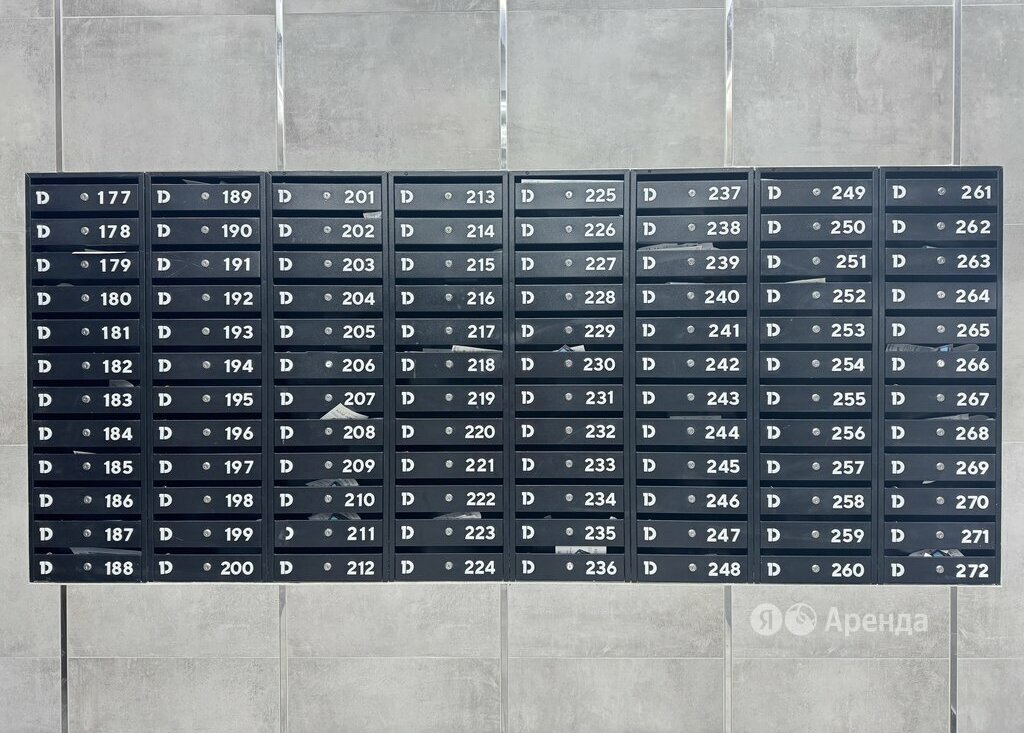 D 177 D 189 D 201 D 213 D 225 D 237 D 249 D 261
D 178 D 190 D 202 D 214 D 226 D 238 D 250 D 262
D 179 D 191 D 203 D 215 D 227 D 239 D 251 D 263
D 180 D 192 D 204 D 216 D 228 D 240 D 252 D 264
D 181 D 193 D 205 D 217 D 229 D 241 D 253 D 265
D 182 D 194 D 206 D 218 D 230 D 242 D 254 D 266
D 183 D 195 D 207 D 219 D 231 D 243 D 255 D 267
D 184 D 196 D 208 D 220 D 232 D 244 D 256 D 268
D 185 D 197 D 209 D 221 D 233 D 245 D 257 D 269
D 186 D 198 D 210 D 222 D 234 D 246 D 258 D 270
D 187 D 199 D 211 D 223 D 235 D 247 D 259 D 271
D 188 D 200 D 212 D 224 D 236 D 248 D 260 D 272
Я Аренда